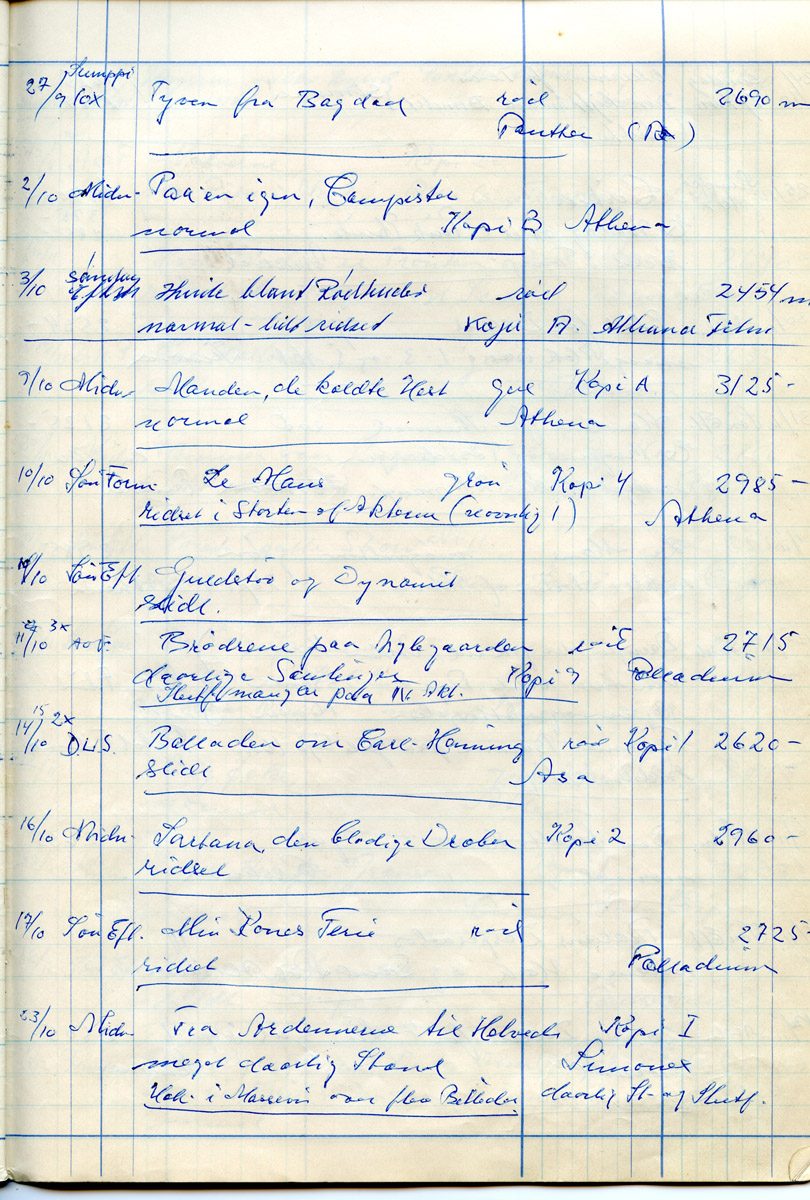 27/9 Tyven fra Bagdad rød 2690 m
Panther
2/10 Midn- Paa'en igen, Campister
normal Kopi B Athena
3/10 Søndag Hvide blant Rødhuder rød 2454 m
Efterm normal - lidt ridset Kopi A. Athena Film
9/10 Midn Manden, de kaldte Hest gul Kopi A 3125 -
normal Athena
10/10 Søn Form Le Mans grøn Kopi 4 2985 -
ridset i Starten af Akterne Athena
10/10 Søn Eft Guldstøv og Dynamit
slidt.
11/10 3x AOF. Brødrene paa Uglegaarden rød 2715
daarlige Samlinger Kopi 9 Palladium
Slutf. mangler paa IV. Akt.
14/10 15 2x D.U.S. Balladen om Carl-Henning rød Kopi 1 2620 -
slidt Asa
16/10 Midn- Sartana, den blodige Dræber Kopi 2 2960 -
ridset
17/10 Søn Eft. Min Kones Ferie rød 2725 -
ridset Palladium
23/10 Midn. Fra Ardennerne til Helvede Kopi I
meget daarlig Stand Simonex
i Massevis over flere Billeder daarlig St- og Slutf.